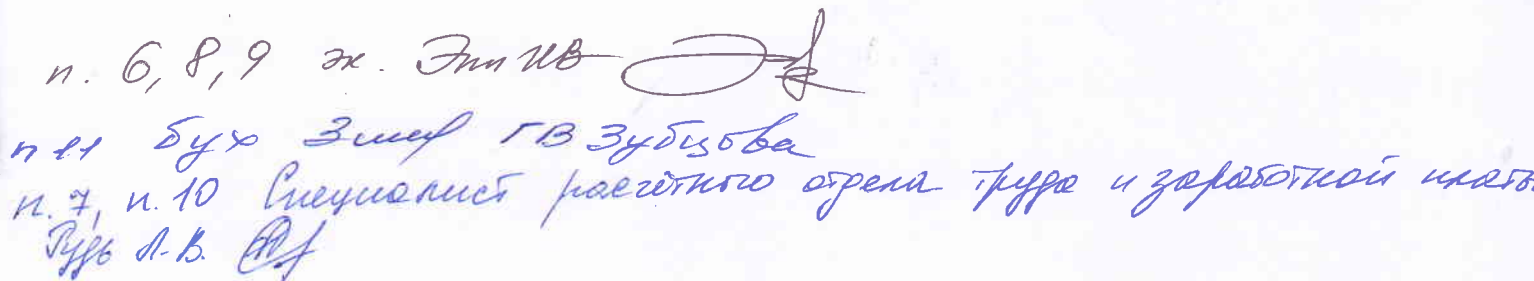 п. 6, 8, 9 эк. Эпп НВ
п 11 бух ГВ Зубцова
п. 7, п. 10 Специалист расчётного отдела труда и заработной платы
Рудь Л.В.